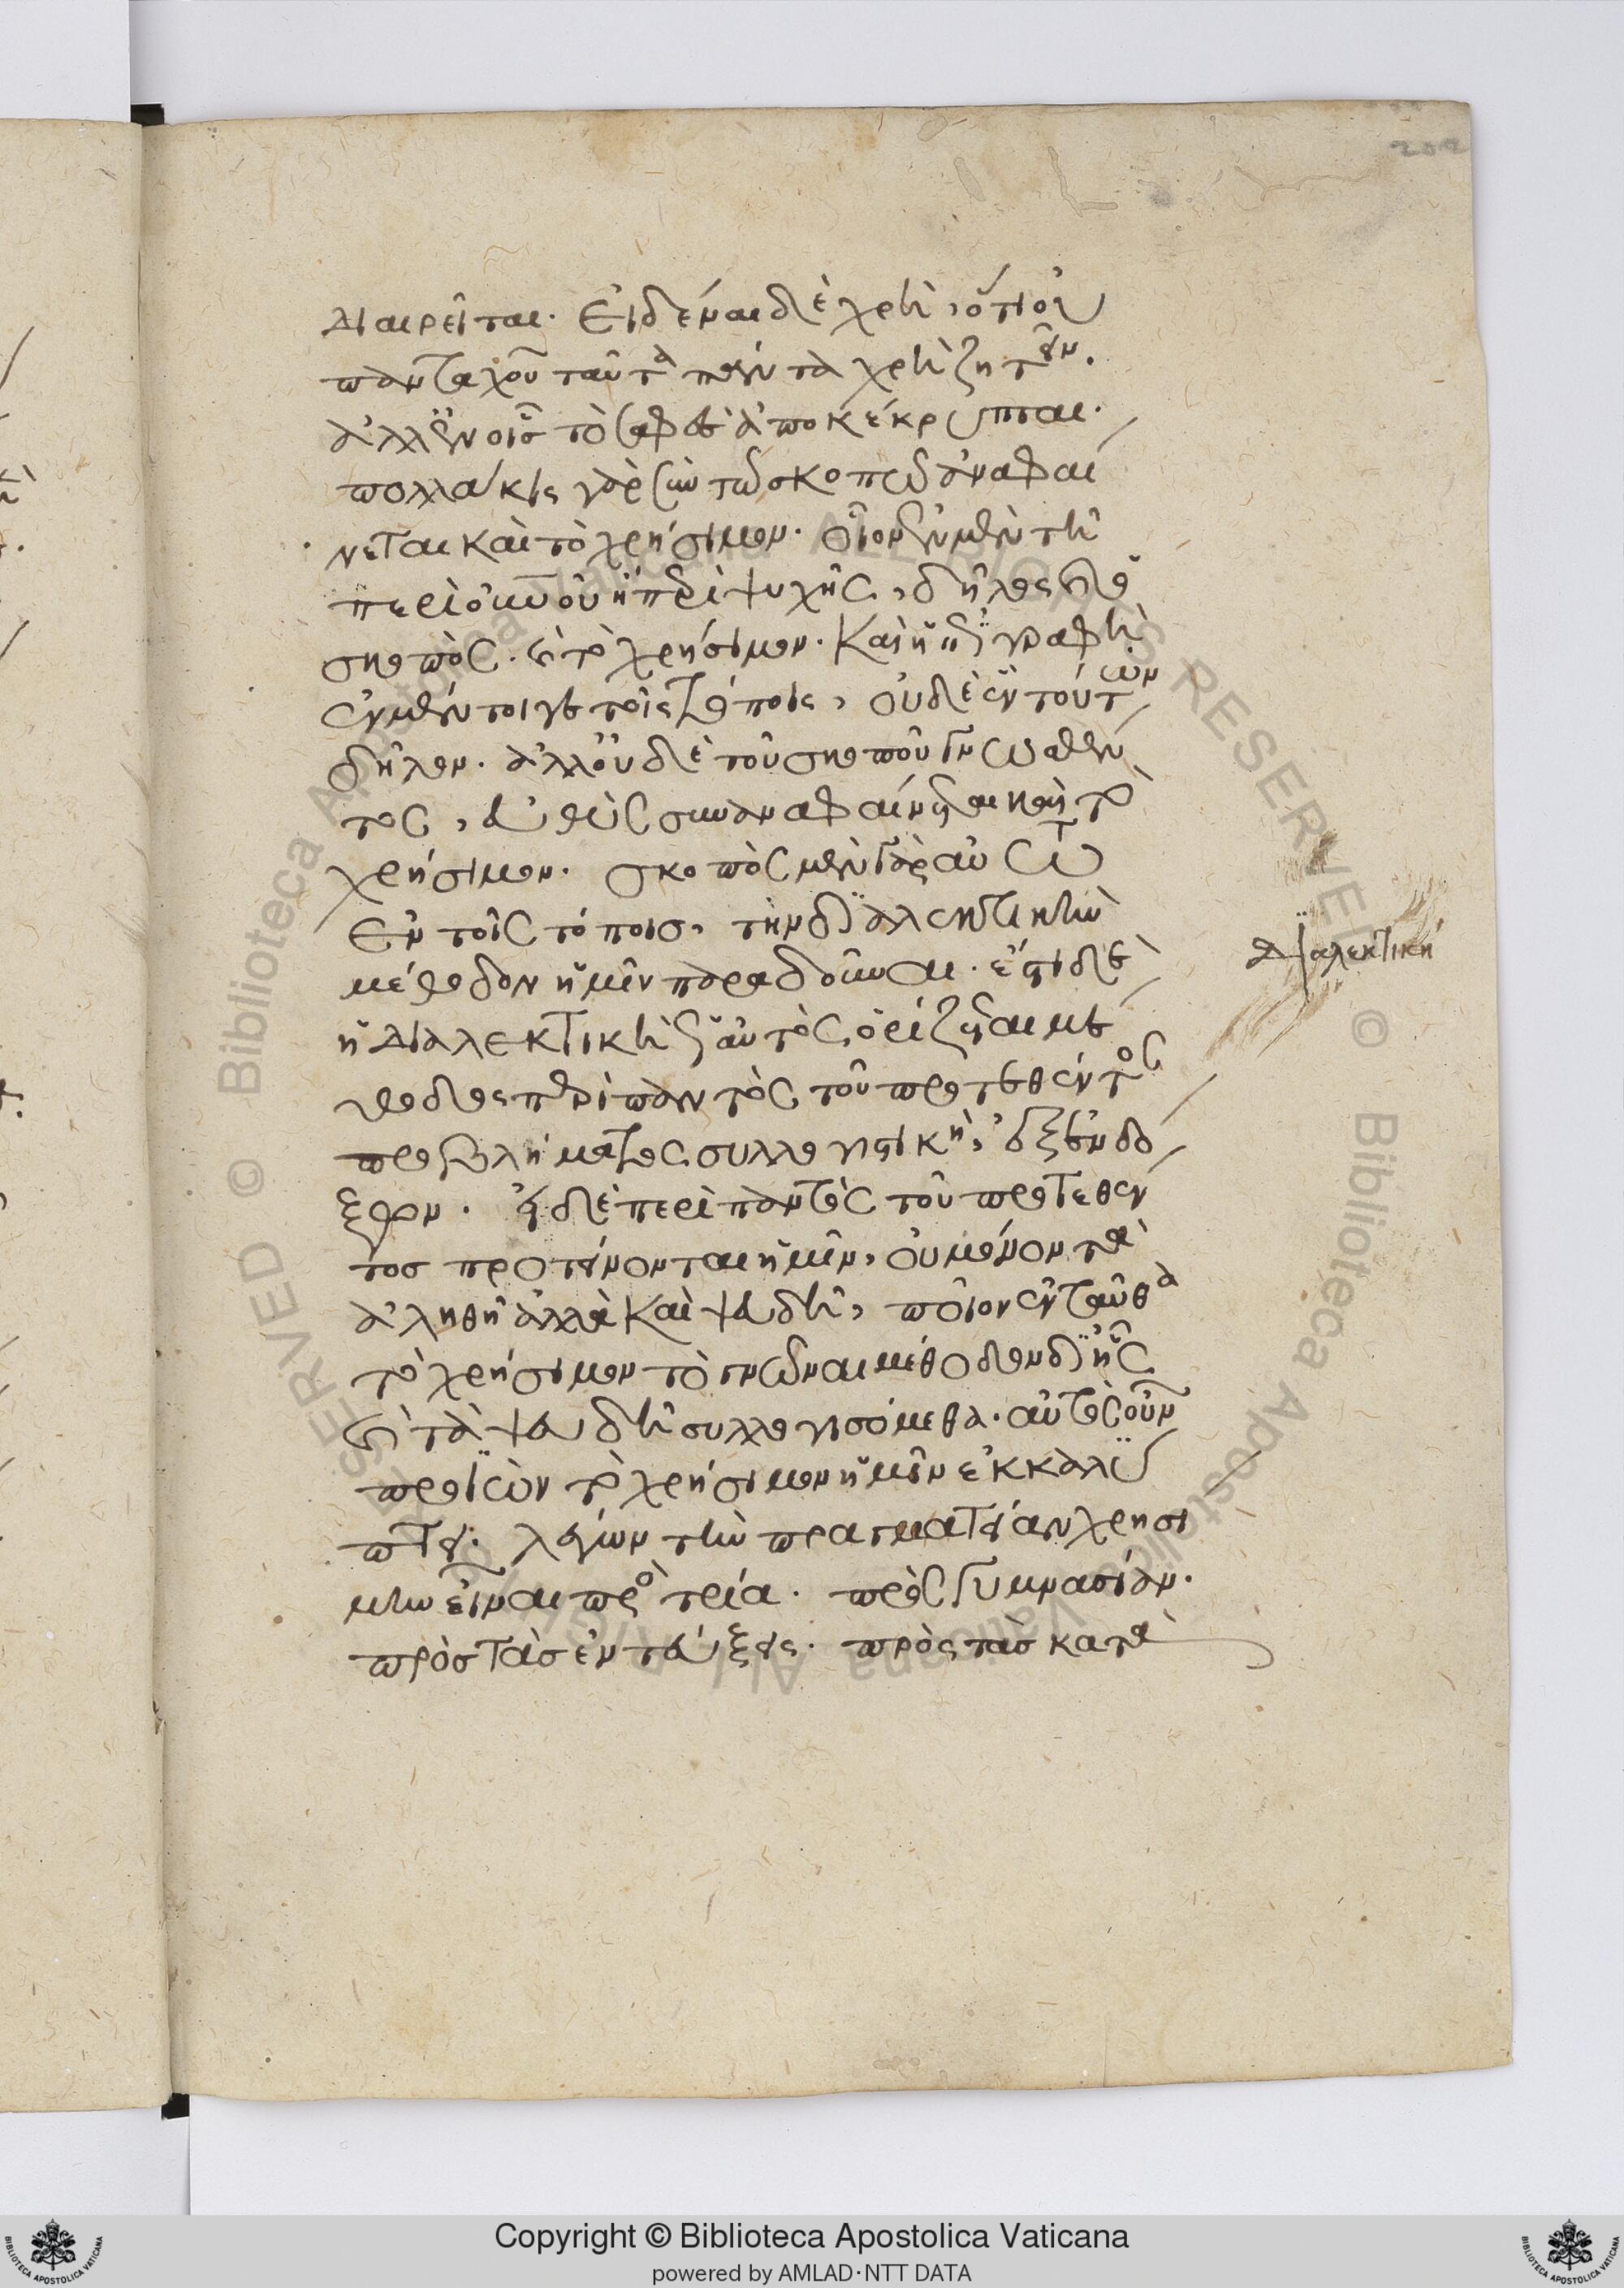 202
διαιρεῖται. Εἰδέναι δὲ χρὴ, ὅτι οὐ
πανταχοῦ ταῦτα πάντα χρὴ ζητεῖν.
ἀλλ' ἐν οἷς τὸ σαφὲς ἀποκέκρυπται.
πολλάκις γὰρ σὺν τῷ σκοπῷ ἀναφαί
νεται καὶ τὸ χρήσιμον. οἷον ἐν μὲν τῇ
περὶ οὐρανοῦ ἢ περὶ ψυχῆς, δῆλος ὁ
σκοπὸς. καὶ τὸ χρήσιμον. Καὶ ἡ ἐπιγραφὴ
ἐν μέντοι γε τοῖς τόποις, οὐδὲν τούτων
δῆλον. ἀλλ' οὐδὲ τοῦ σκοποῦ γνωσθέν
τος, εὐθὺς συναναφαίνεται καὶ τὸ
χρήσιμον. σκοπὸς μὲν γὰρ αὐτῷ
Ἐν τοῖς τόποις, τὴν διαλεκτικὴν
μέθοδον ἡμῖν παραδοῦναι. ἐπεὶ δὲ
διαλεκτική
ἡ διαλεκτικὴ ὡς αὐτὸς ὁρίζεται μέ
θοδος περὶ παντὸς τοῦ προτεθέντος
προβλήματος συλλογιστικὴ, ἐξ ἐνδό
ξων. εἰ δὲ περὶ παντὸς τοῦ προτεθέν
τος προτείνονται ἡμῖν, οὐ μόνον τὰ
ἀληθῆ ἀλλὰ καὶ ψευδῆ, ποῖον ἐνταῦθα
τὸ χρήσιμον τὸ γνῶναι μέθοδον δι' ἧς
καὶ τὰ ψευδῆ συλλογισόμεθα. αὐτὸς οὖν
προϊὼν τὸ χρήσιμον ἡμῖν ἐκκαλύ
πτει. λέγων τὴν πραγματείαν χρησί
μην εἶναι πρὸς τρία. πρὸς γυμνασίαν.
πρὸς τὰς ἐντεύξεις. πρὸς τὰς κατὰ
Copyright © Biblioteca Apostolica Vaticana
powered by AMLAD·NTT DATA